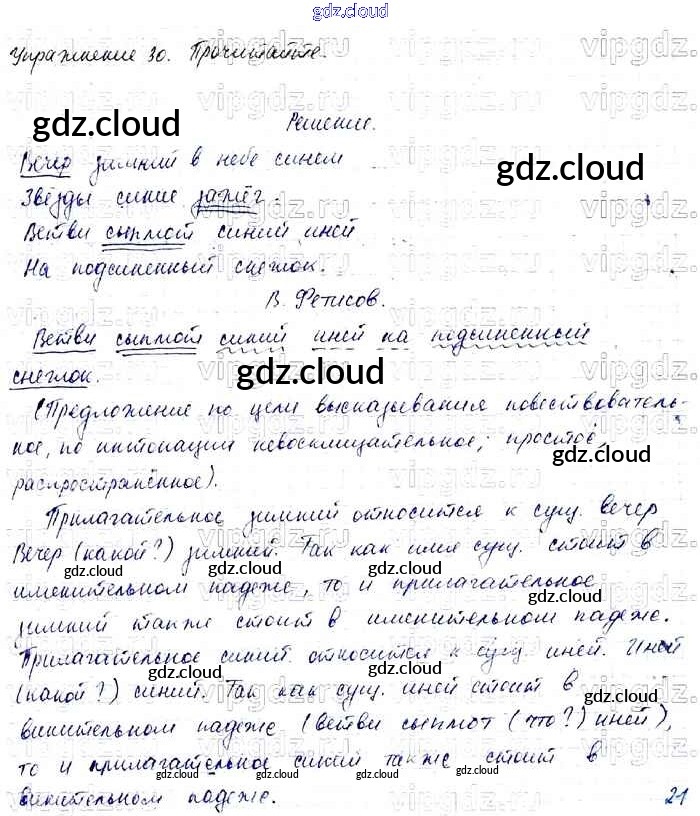 gdz.cloud
Упражнение 30. Прочитайте.
Решение.
Вечер зимний в небе синем
Звёзды синие зажёг.
Ветви сыплют синий иней
На подсиненный снежок.
В. Фетисов.
Ветви сыплют синий иней на подсиненный
снежок.
(Предложение по цели высказывания повествователь-
ное, по интонации невосклицательное, простое,
распространённое).
Прилагательное зимний относится к сущ. вечер
Вечер (какой?) зимний. Так как имя сущ. стоит в
именительном падеже, то и прилагательное
зимний также стоит в именительном падеже.
Прилагательное синий относится к сущ. иней. Иней
(какой?) синий. Так как сущ. иней стоит в
винительном падеже (ветви сыплют (что?) иней),
то и прилагательное синий также стоит в
винительном падеже.
21